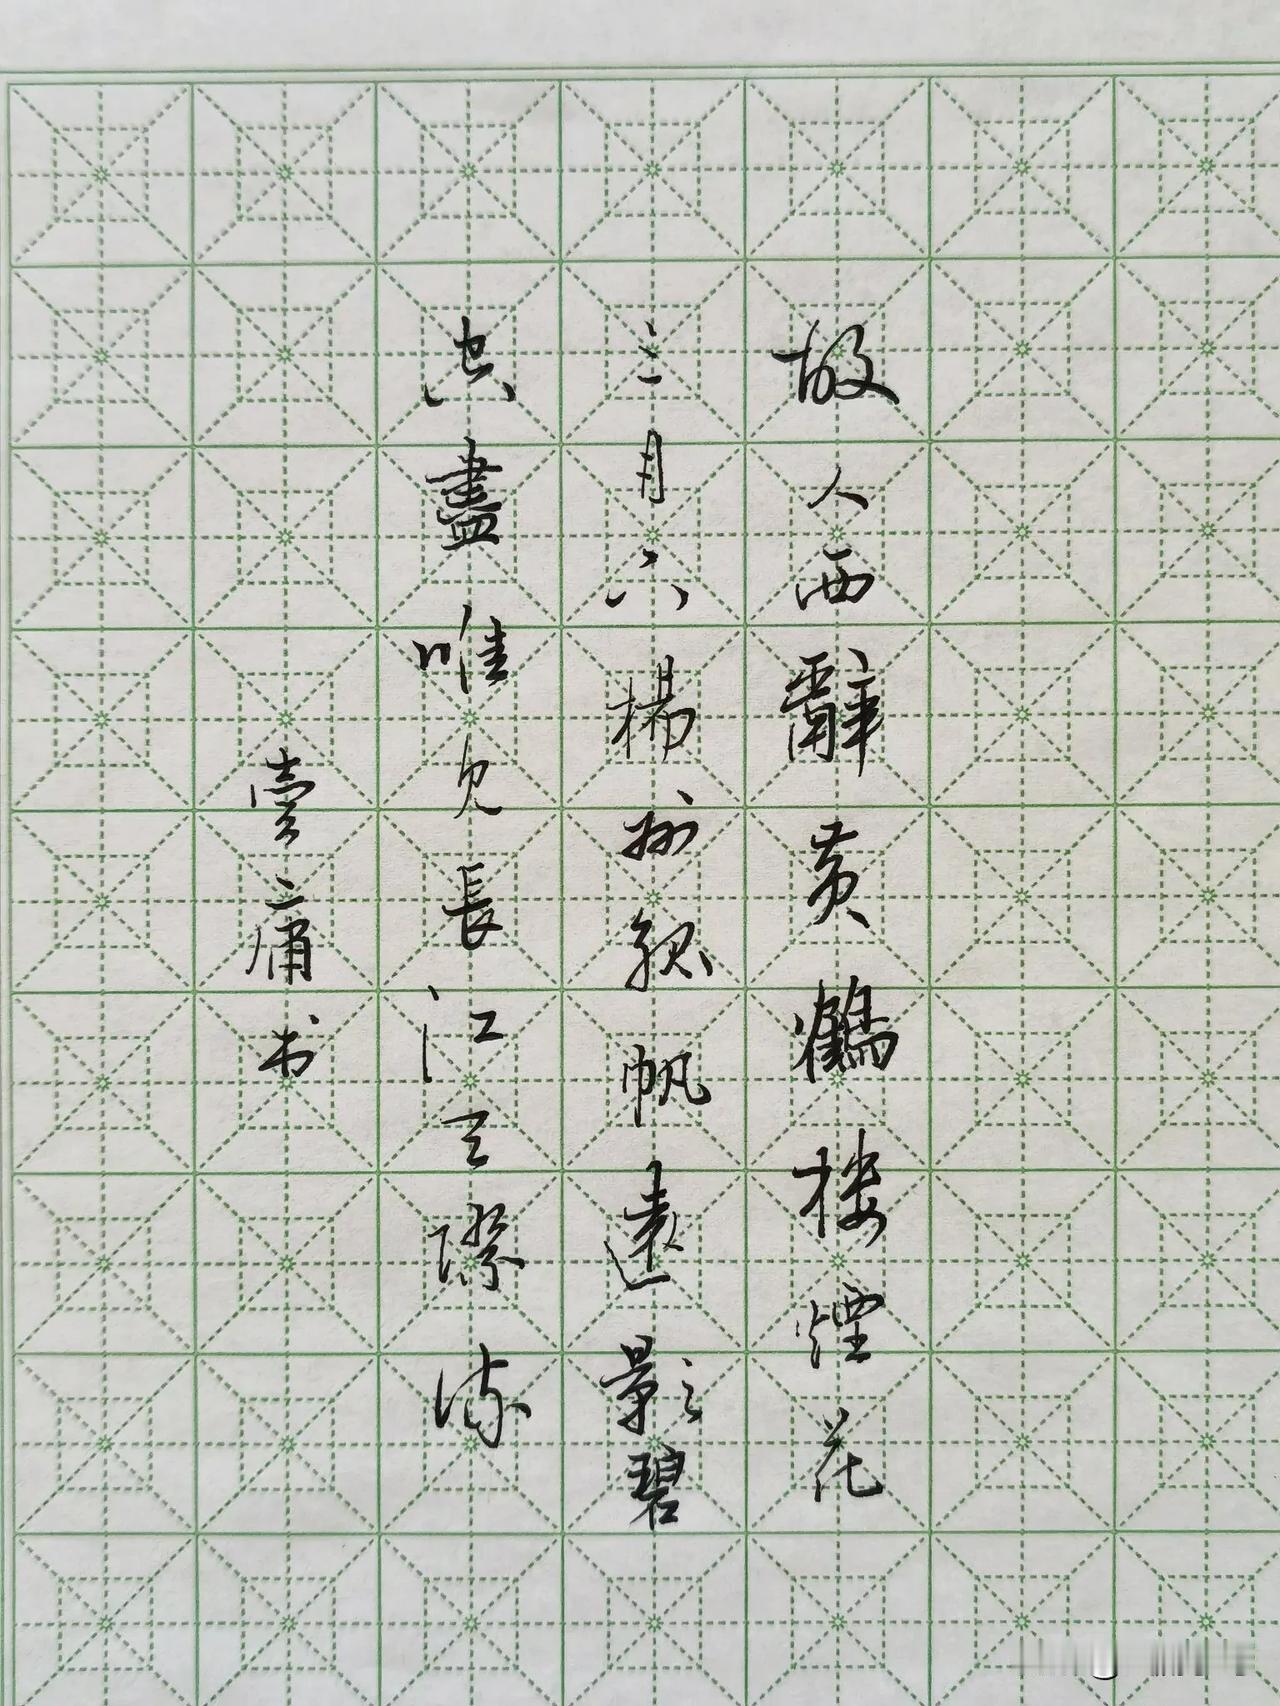 故人西辭黄鶴楼煙花
三月下楊州孤帆遠影碧
空盡唯見長江天際流
壹庸书